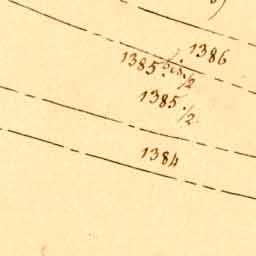 1386
1385 bis 1/2
1385 1/2
1384